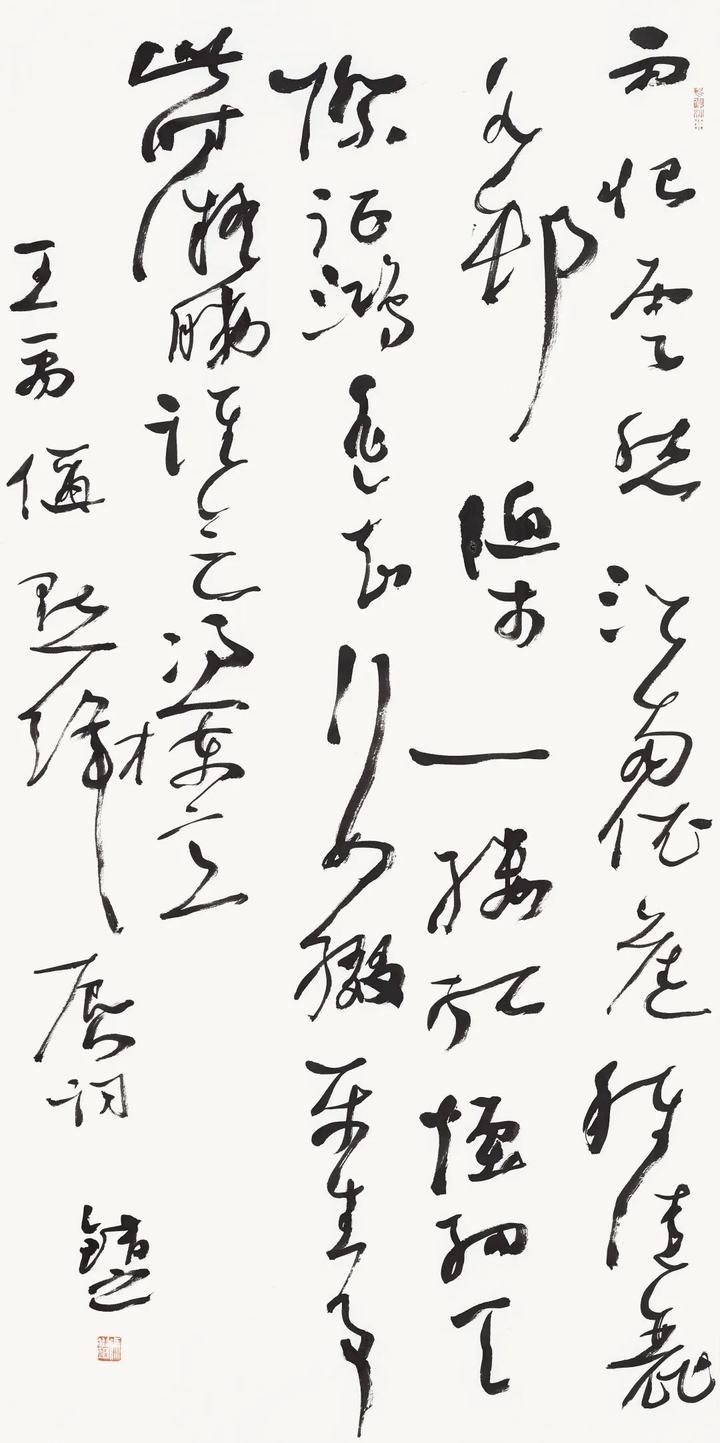 雨恨雲愁江南依舊稱佳麗
水邨漁市一縷孤煙細天
際征鴻遥知行如綴平生事
此時凝睇誰會憑欄意
王禹偁點絳唇詞